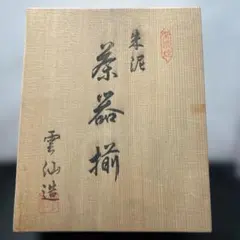 朱泥
茶器揃
雲仙造